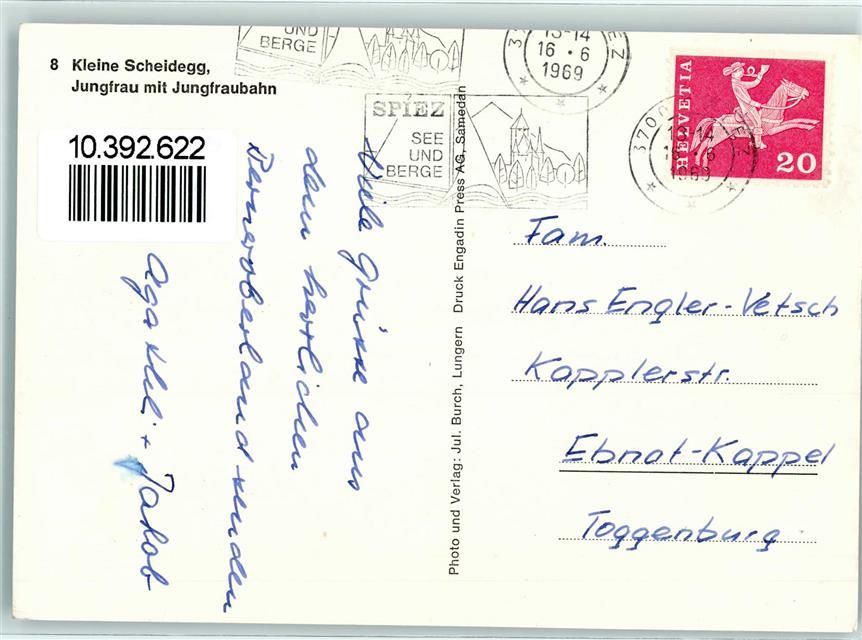 8 Kleine Scheidegg,
Jungfrau mit Jungfraubahn
10.392.622
UND
BERGE
13-14
16.6
1969
SPIEZ
SEE
UND
BERGE
3700
13-14
16.6
1969
HELVETIA
20
Viele Grüsse aus
dem herrlichen
Berneroberland senden
Agathli + Jakob
Photo und Verlag: Jul. Burch, Lungern Druck Engadin Press AG, Samedan
Fam.
Hans Engler-Vetsch
Kapplerstr.
Ebnat-Kappel
Toggenburg